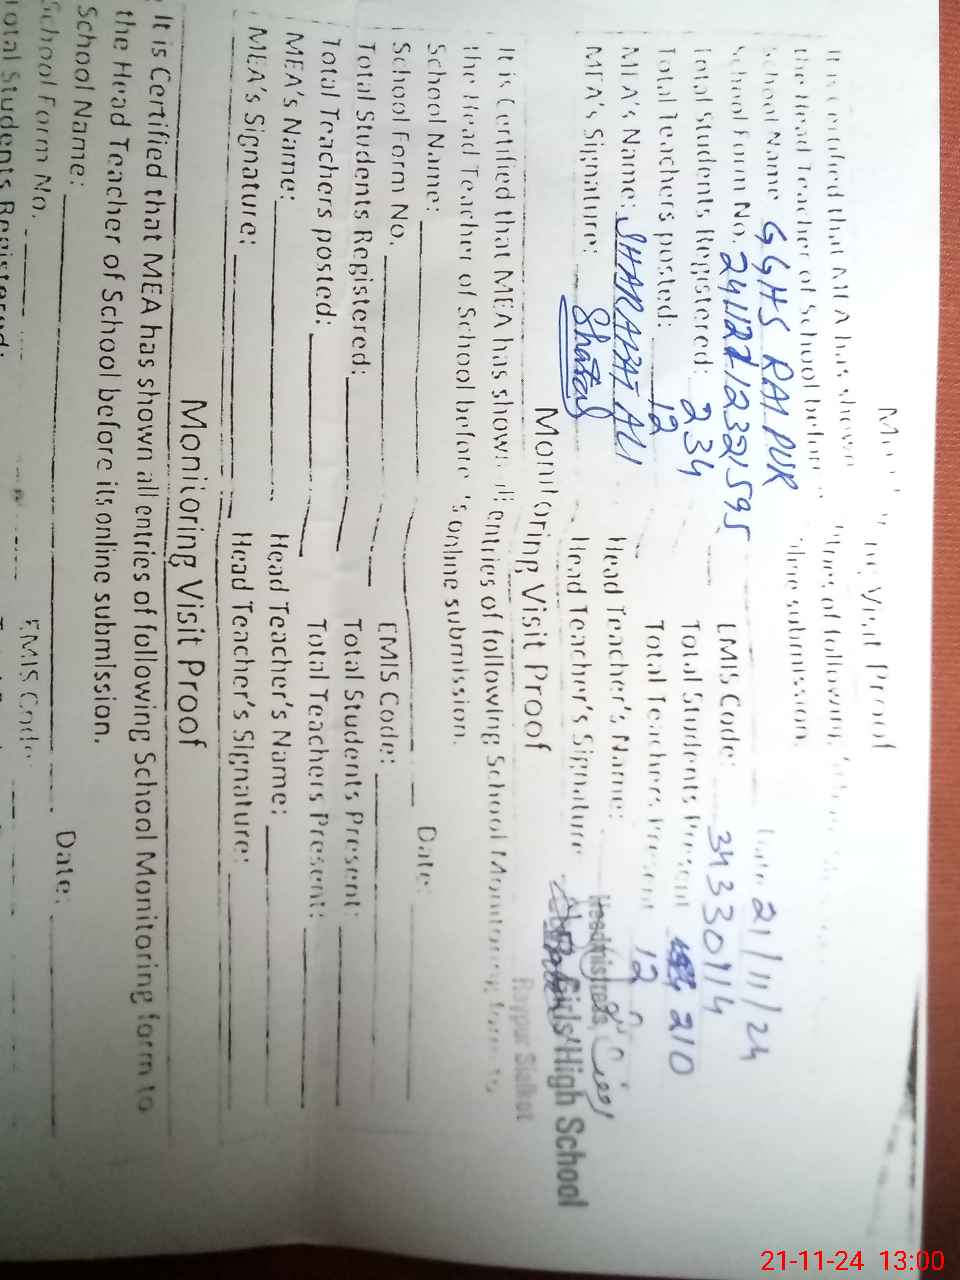 Visit Proof
It is certified that MEA has shown entries of following
the Head Teacher of School before online submission.
School Name GGHS RAIPUR Date 21/11/24
School Form No. 241127/2321595 EMIS Code: 34330114
Total Students Registered: 234 Total Students Present 210
Total Teachers posted: 12 Total Teachers Present 12
MEA's Name: SHARAFAT ALI Head Teacher's Name:
MEA's Signature: Head Teacher's Signature
Headmistress
Girls High School
Raypur Sialkot
Monitoring Visit Proof
It is Certified that MEA has shown all entries of following School Monitoring form to
the Head Teacher of School before its online submission.
School Name: Date:
School Form No. EMIS Code:
Total Students Registered: Total Students Present:
Total Teachers posted: Total Teachers Present:
MEA's Name: Head Teacher's Name:
MEA's Signature: Head Teacher's Signature:
Monitoring Visit Proof
It is Certified that MEA has shown all entries of following School Monitoring form to
the Head Teacher of School before its online submission.
School Name: Date:
School Form No. EMIS Code:
Total Students Registered:
21-11-24 13:00